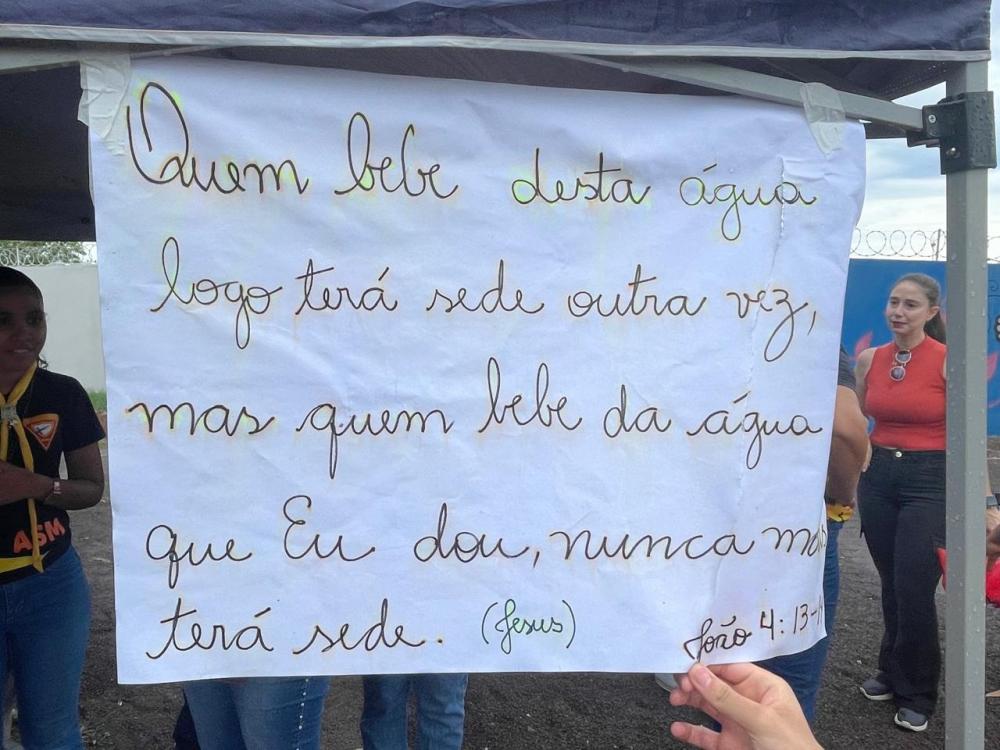 Quem bebe desta água
logo terá sede outra vez,
mas quem bebe da água
que Eu dou, nunca mais
terá sede. (Jesus)
João 4: 13-
ASM